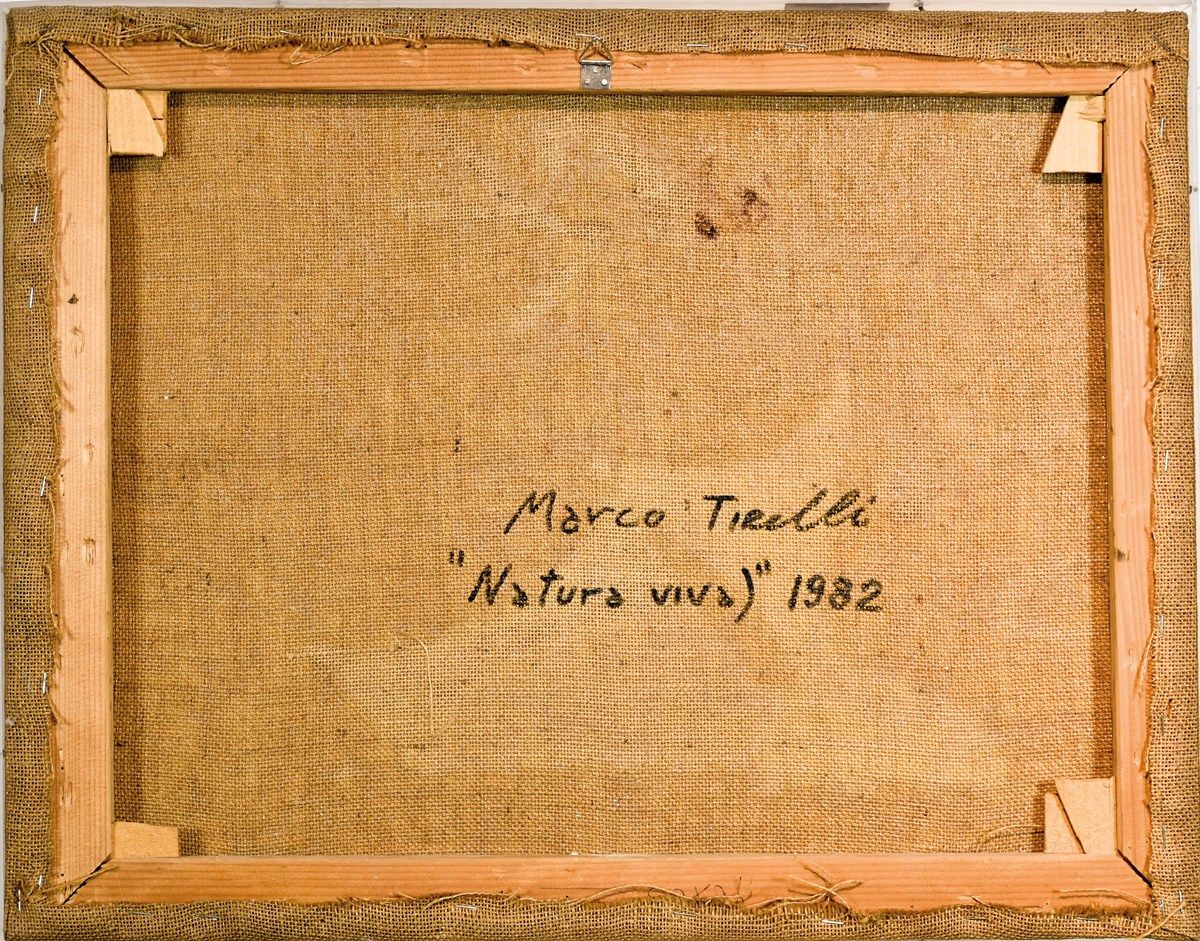 Marco Tirelli
"Natura viva)" 1982